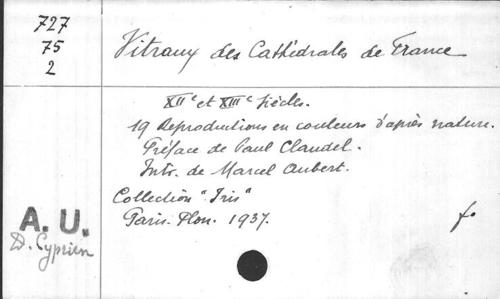 727
75
2
Vitraux des Cathédrales de France
XIIe et XIIIe siècles.
19 Reproductions en couleurs d'après nature.
Préface de Paul Claudel.
Intr. de Marcel Aubert.
Collection "Iris"
Paris. Plon. 1937.
f.
A. U.
D. Cyprien